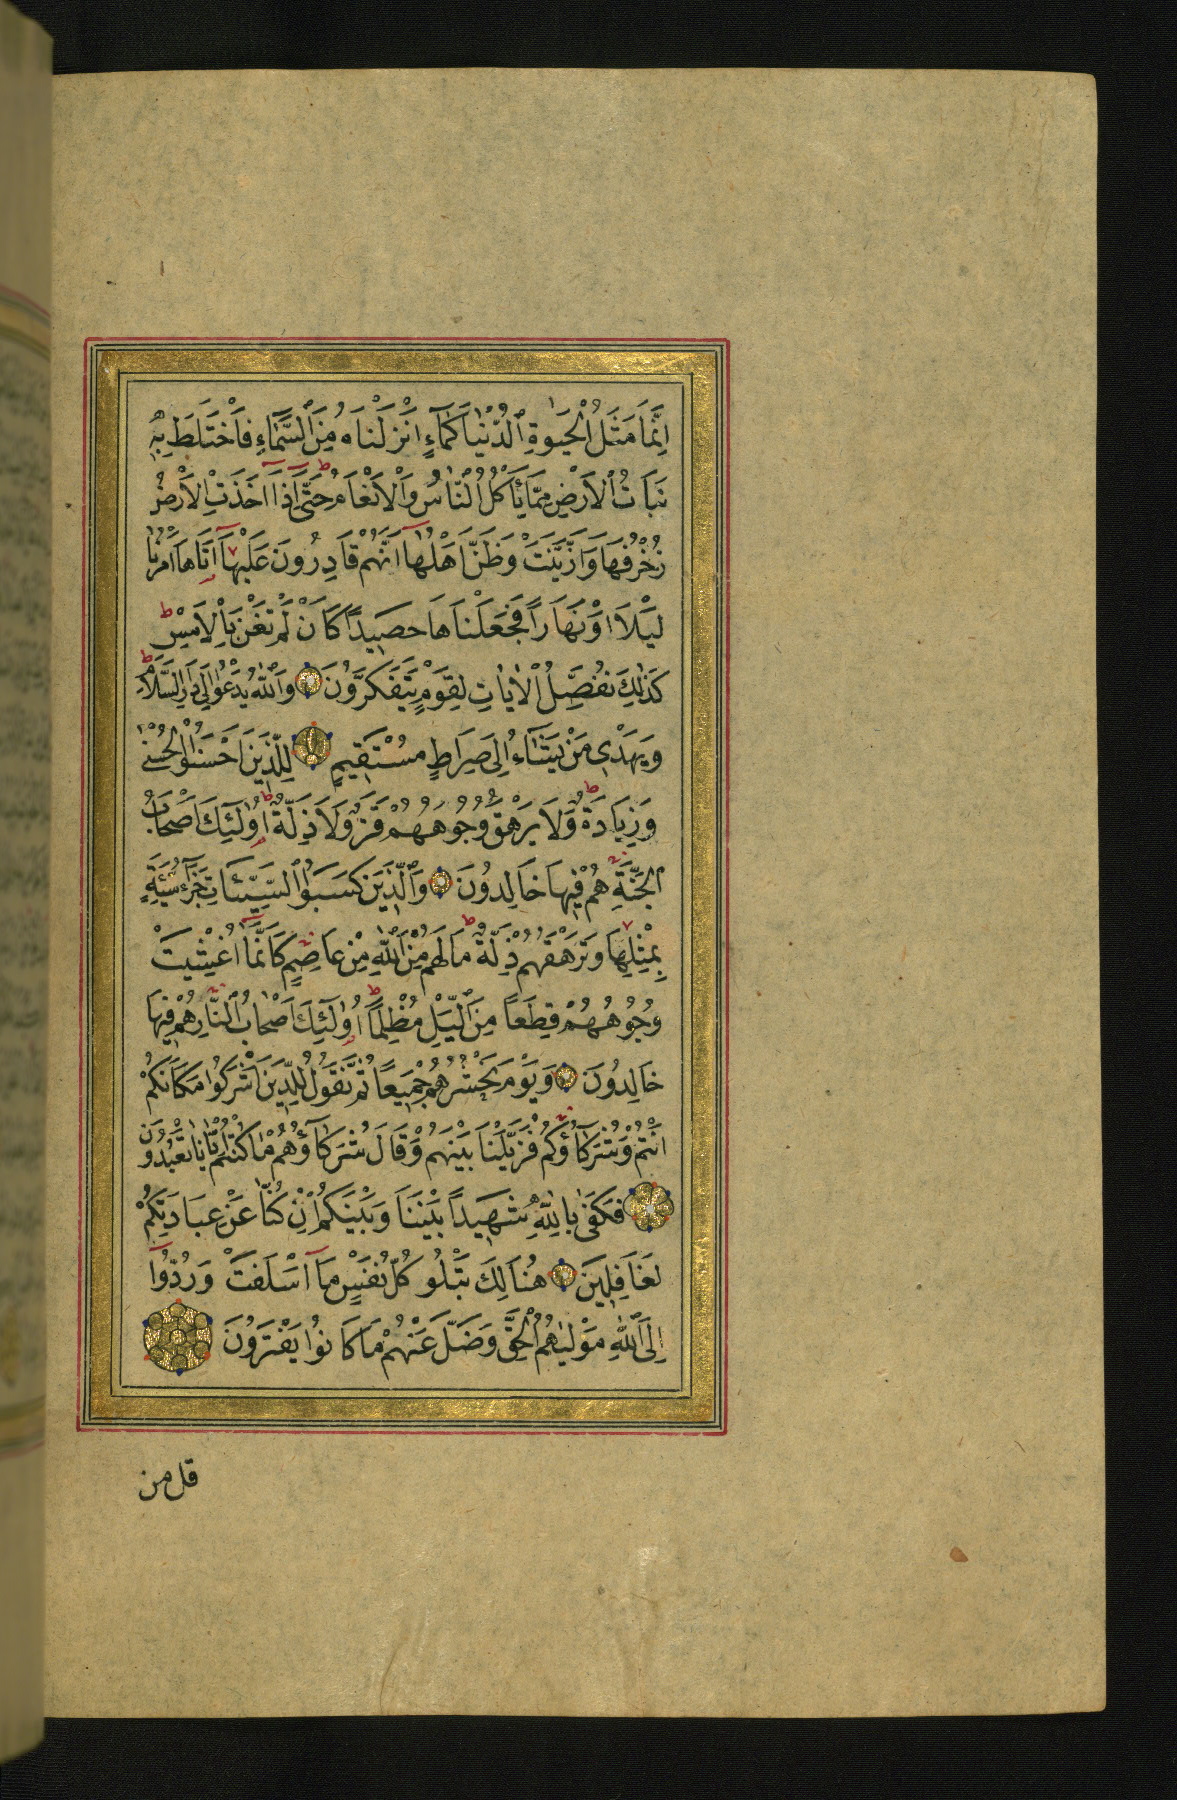 اِنَّمَا مَثَلُ الْحَيٰوةِ الدُّنْيَا كَمَآءٍ اَنْزَلْنَاهُ مِنَ السَّمَآءِ فَاخْتَلَطَ بِهٖ
نَبَاتُ الْاَرْضِ مِمَّا يَأْكُلُ النَّاسُ وَالْاَنْعَامُ ط حَتّٰٓى اِذَآ اَخَذَتِ الْاَرْضُ
زُخْرُفَهَا وَازَّيَّنَتْ وَظَنَّ اَهْلُهَآ اَنَّهُمْ قَادِرُونَ عَلَيْهَآ اَتٰاهَآ اَمْرُنَا
لَيْلًا اَوْ نَهَارًا فَجَعَلْنَاهَا حَصِيدًا كَاَنْ لَمْ تَغْنَ بِالْاَمْسِ ط
كَذٰلِكَ نُفَصِّلُ الْاٰيَاتِ لِقَوْمٍ يَتَفَكَّرُونَ وَاللّٰهُ يَدْعُوا اِلٰى دَارِ السَّلَامِ ط
وَيَهْدِى مَنْ يَشَآءُ اِلٰى صِرَاطٍ مُسْتَقِيمٍ لِلَّذِينَ اَحْسَنُوا الْحُسْنٰى
وَزِيَادَةٌ ط وَلَا يَرْهَقُ وُجُوهَهُمْ قَتَرٌ وَلَا ذِلَّةٌ ط اُولٰٓئِكَ اَصْحَابُ
الْجَنَّةِ هُمْ فِيهَا خَالِدُونَ وَالَّذِينَ كَسَبُوا السَّيِّئَاتِ جَزَآءُ سَيِّئَةٍ
بِمِثْلِهَا وَتَرْهَقُهُمْ ذِلَّةٌ ط مَا لَهُمْ مِنَ اللّٰهِ مِنْ عَاصِمٍ كَاَنَّمَآ اُغْشِيَتْ
وُجُوهُهُمْ قِطَعًا مِنَ الَّيْلِ مُظْلِمًا ط اُولٰٓئِكَ اَصْحَابُ النَّارِ هُمْ فِيهَا
خَالِدُونَ وَيَوْمَ نَحْشُرُهُمْ جَمِيعًا ثُمَّ نَقُولُ لِلَّذِينَ اَشْرَكُوا مَكَانَكُمْ
اَنْتُمْ وَشُرَكَآؤُكُمْ فَزَيَّلْنَا بَيْنَهُمْ وَقَالَ شُرَكَآؤُهُمْ مَا كُنْتُمْ اِيَّانَا تَعْبُدُونَ
فَكَفٰى بِاللّٰهِ شَهِيدًا بَيْنَنَا وَبَيْنَكُمْ اِنْ كُنَّا عَنْ عِبَادَتِكُمْ
لَغَافِلِينَ هُنَالِكَ تَبْلُو كُلُّ نَفْسٍ مَآ اَسْلَفَتْ وَرُدُّوٓا
اِلَى اللّٰهِ مَوْلٰيهُمُ الْحَقِّ وَضَلَّ عَنْهُمْ مَا كَانُوا يَفْتَرُونَ
قل من